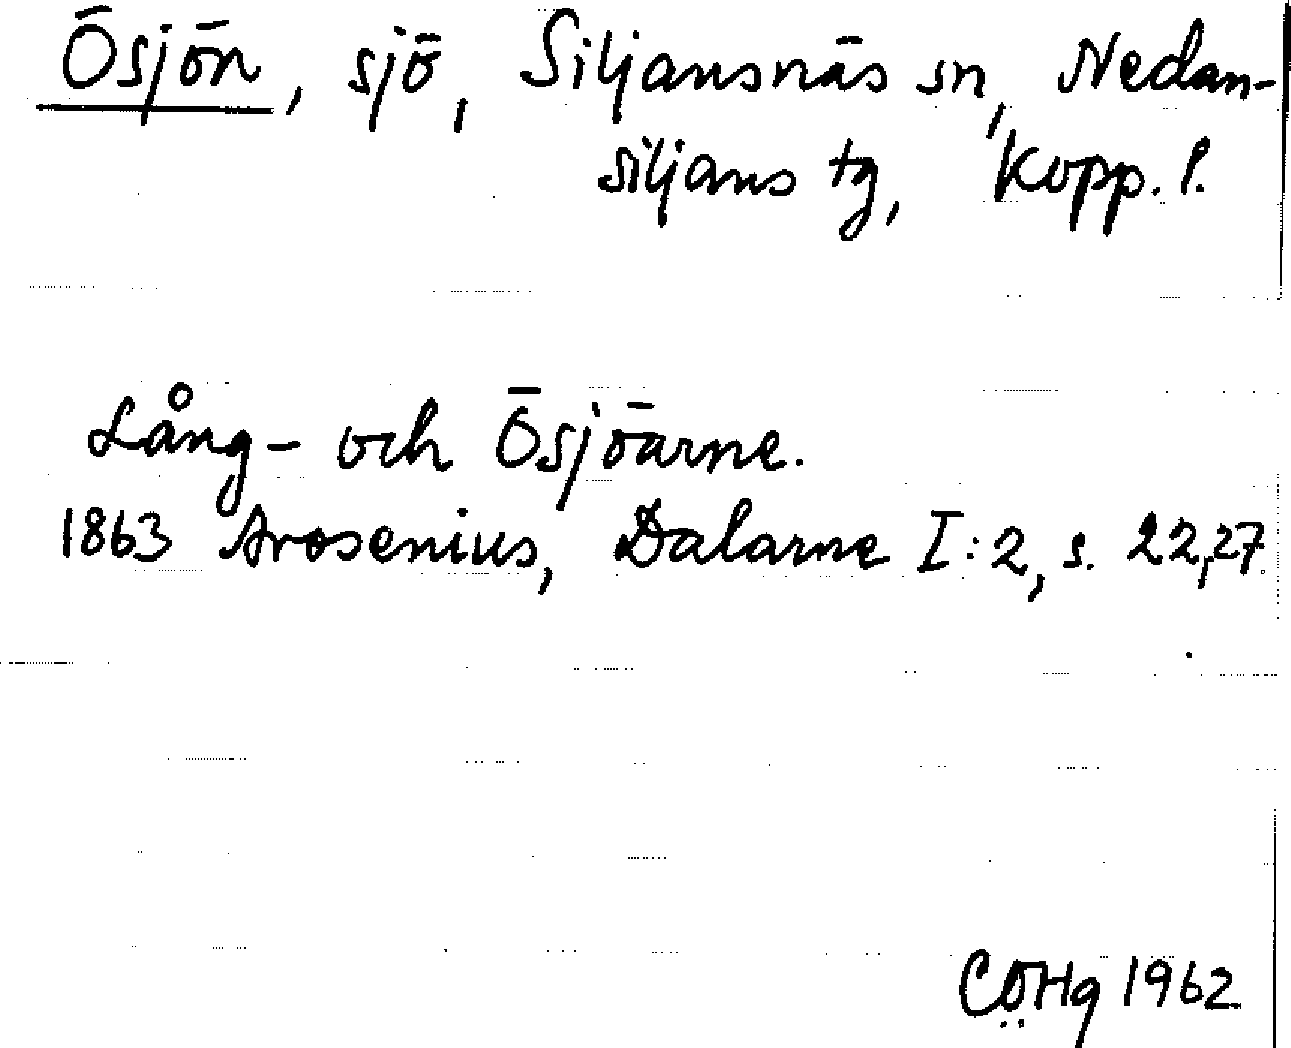 Ösjön, sjö, Siljansnäs sn, Nedan-
siljans tg, Kopp. l.
Lång- och Ösjöarne.
1863 Arosenius, Dalarne I:2, s. 22,27.
CÖHg 1962